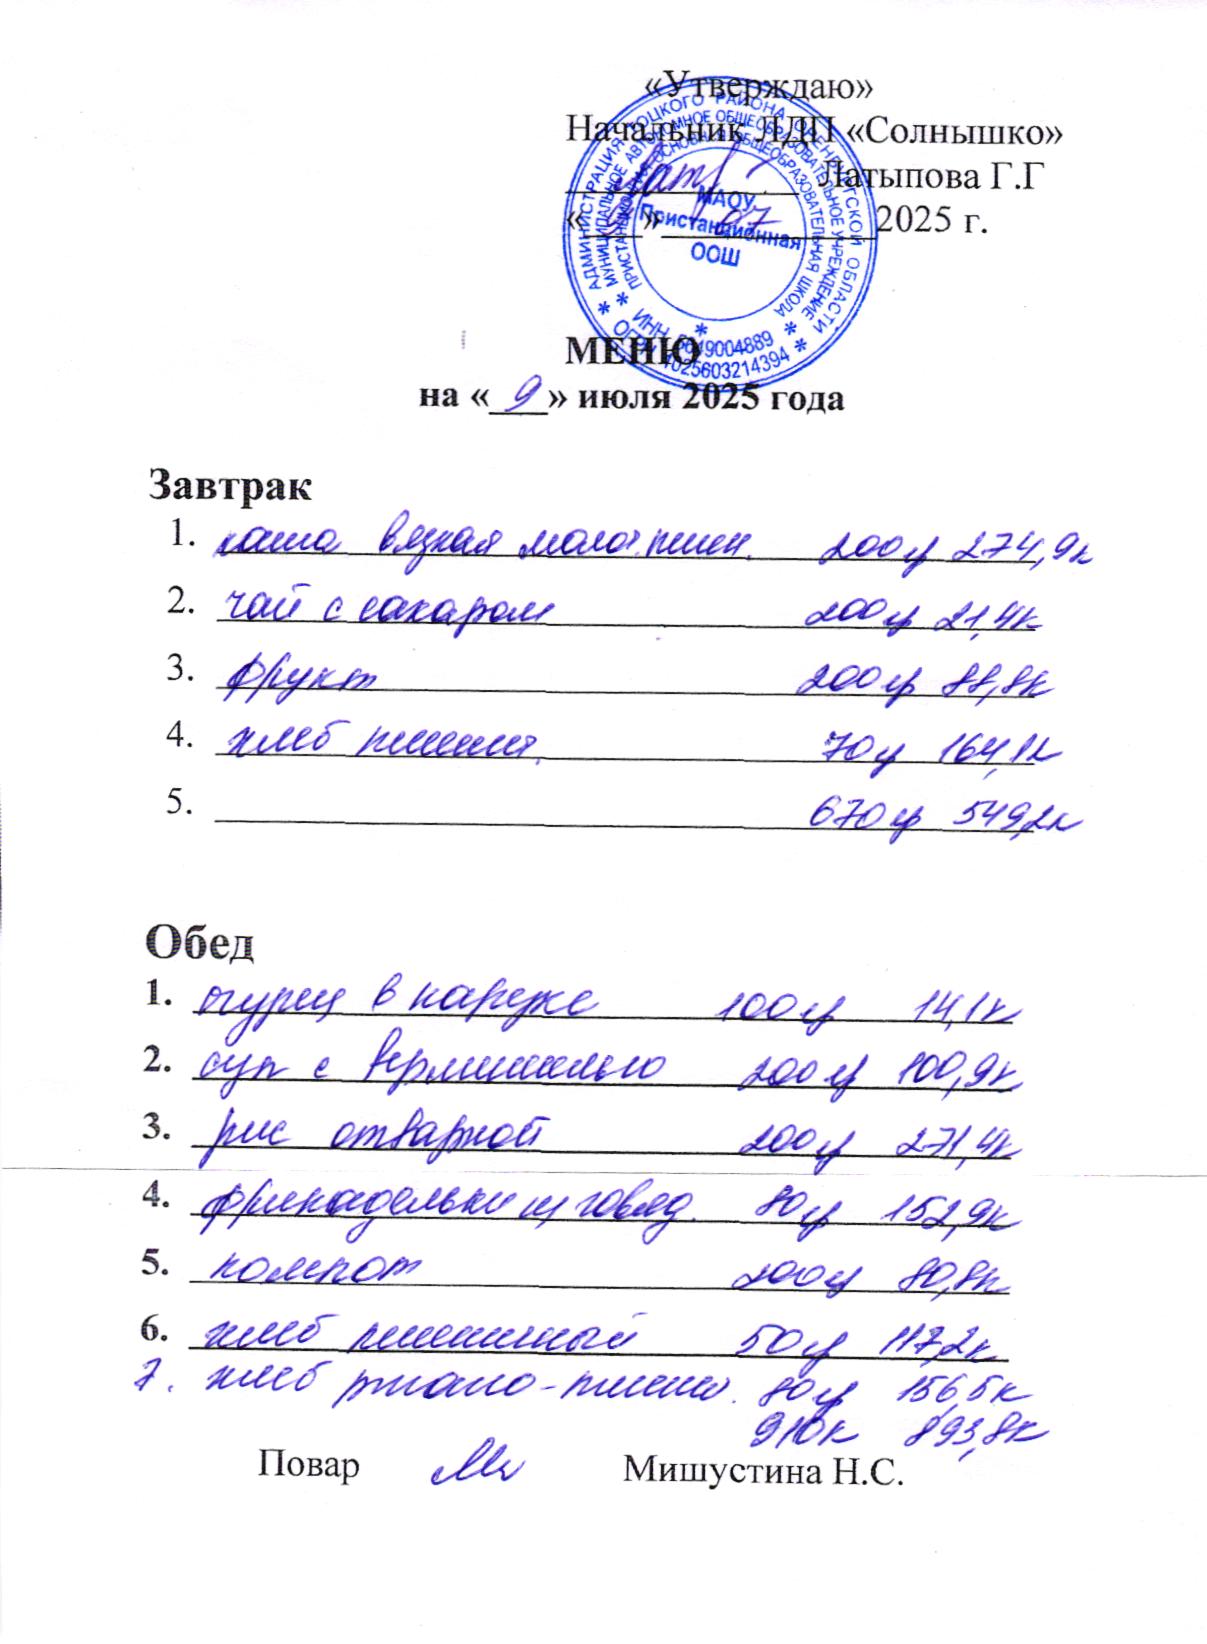 «Утверждаю»
Начальник ЛДП «Солнышко»
Латыпова Г.Г
«___»___07___2025 г.
АДМИНИСТРАЦИЯ ТОЦКОГО РАЙОНА ОРЕНБУРГСКОЙ ОБЛАСТИ
МУНИЦИПАЛЬНОЕ АВТОНОМНОЕ ОБЩЕОБРАЗОВАТЕЛЬНОЕ УЧРЕЖДЕНИЕ
ПРИСТАНЦИОННАЯ ОСНОВНАЯ ОБЩЕОБРАЗОВАТЕЛЬНАЯ ШКОЛА
МАОУ
Пристанционная
ООШ
ИНН 5649004889
ОГРН 1025603214394
МЕНЮ
на «9» июля 2025 года
Завтрак
1. каша вязкая молоч. пшен. 200 гр 274,9к
2. чай с сахаром 200 гр 21,4к
3. фрукт 200 гр 88,8к
4. хлеб пшенич. 70 гр 164,1к
5. 670 гр 549,2к
Обед
1. огурец в нарезке 100 гр 14,1к
2. суп с вермишелью 200 гр 100,9к
3. рис отварной 200 гр 271,4к
4. фрикадельки из говяд. 80 гр 152,9к
5. компот 200 гр 80,8к
6. хлеб пшеничный 50 гр 117,2к
7. хлеб ржано-пшенич. 80 гр 156,5к
910к 893,8к
Повар Мишустина Н.С.